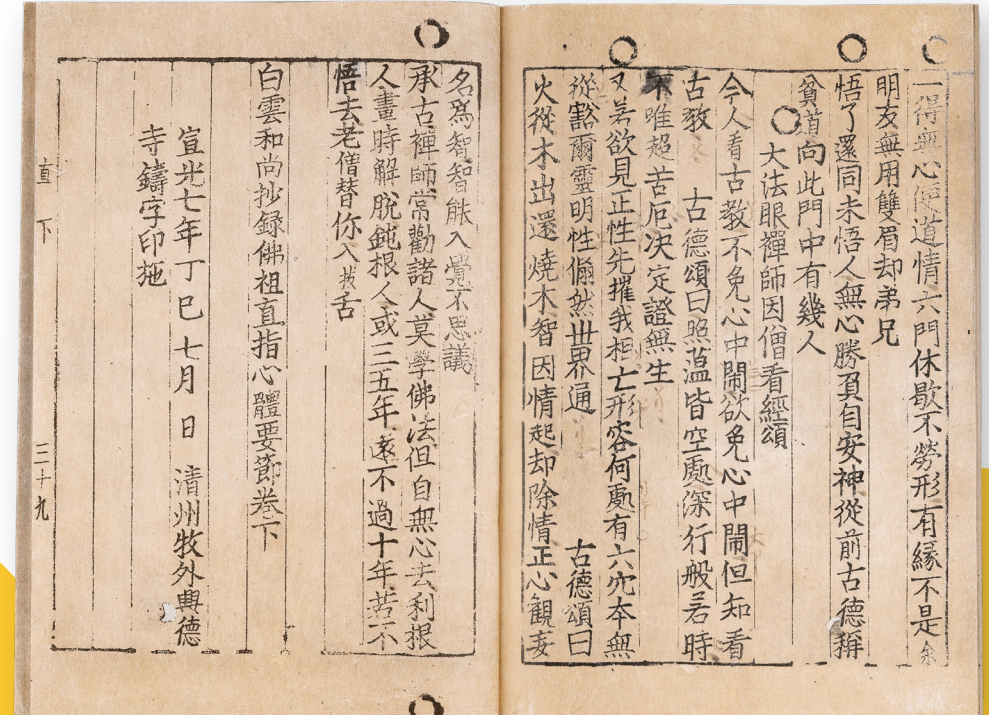 一得無心便道情六門休歇不勞形有緣不是余
明友無用雙眉却弟兄
悟了還同未悟人無心勝負自安神從前古德稱
貧道向此門中有幾人
大法眼禪師因僧看經頌
今人看古教不免心中鬧欲免心中鬧但知看
古教 古德頌曰照蘊皆空處深行般若時
不唯超苦厄决定證無生
又若欲見正性先摧我相亡形容何處有六穴本無
從豁爾靈明性翛然世界通 古德頌曰
火從木出還燒木智因情起却除情正心觀妄
名爲智智能入覺不思議
承古禪師常勸諸人莫學佛法但自無心去利根
人晝時解脫鈍根人或三五年遠不過十年若不
悟去老僧替你入拔舌
白雲和尚抄錄佛祖直指心體要節卷下
宣光七年丁巳七月 日 清州牧外興德
寺鑄字印施
直 下 三十九